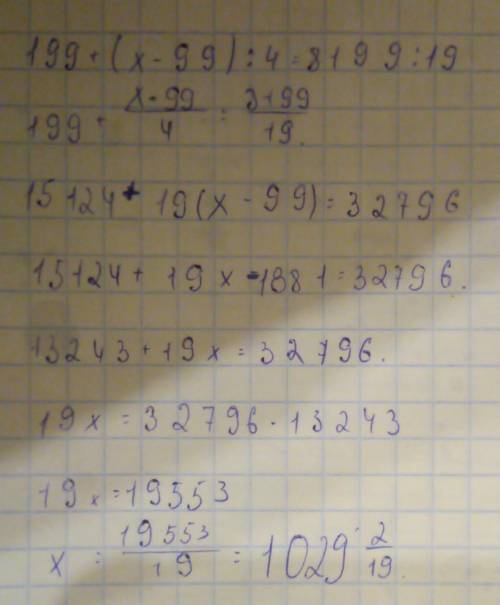 199+(x-99):4=8199:19
199+ x-99/4 = 8199/19.
15124+19(x-99)=32796
15124+19x-1881=32796.
13243+19x=32796.
19x=32796-13243
19x=19553
x = 19553/19 = 1029 2/19